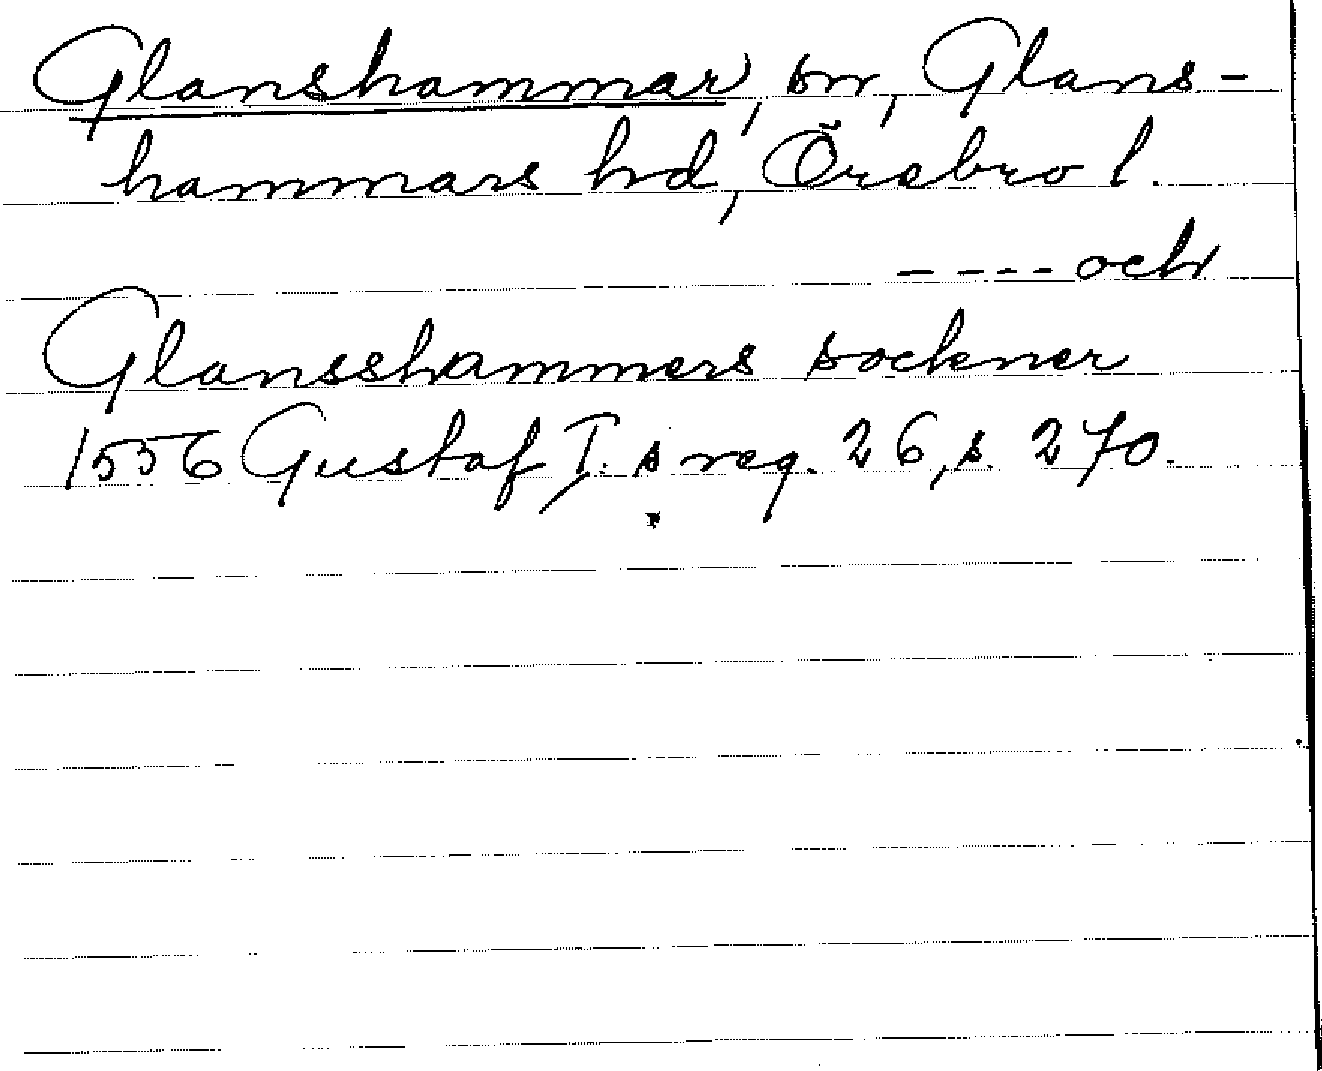 Glanshammar, sn, Glans-
hammars hd, Örebro l.
---- och
Glansshammers sockner
1556 Gustaf I. s reg. 26, s. 270.